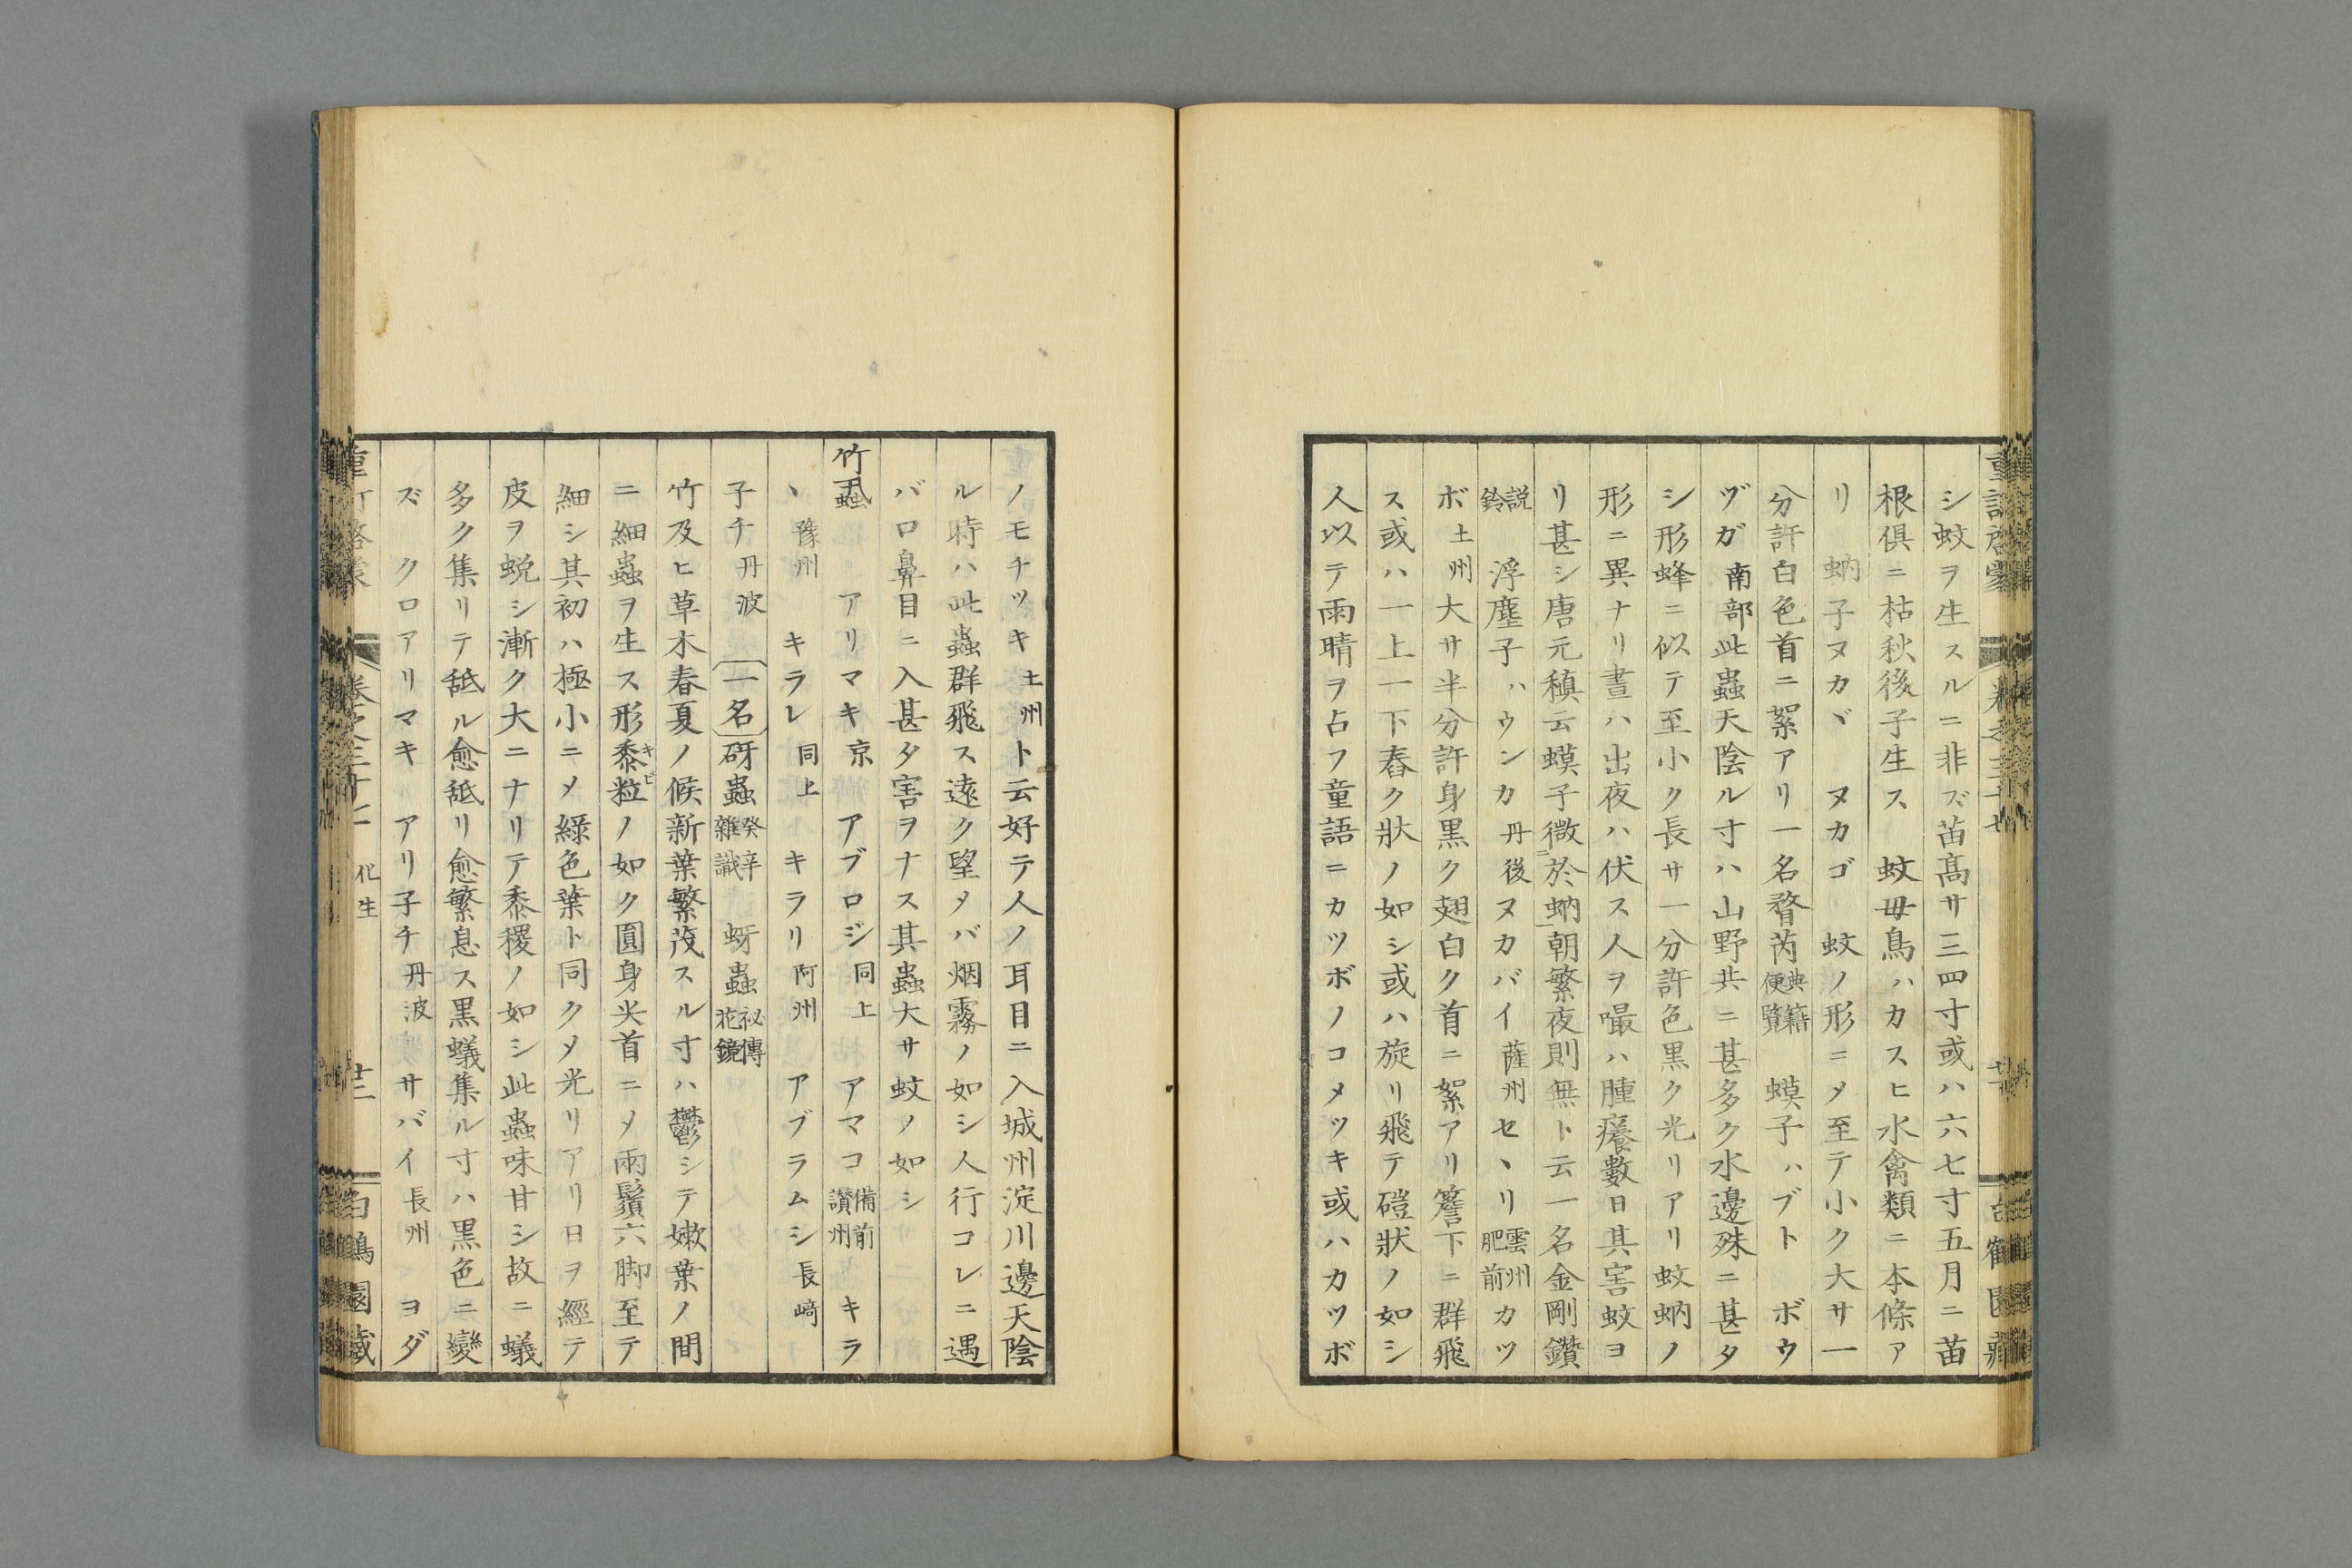 シ蚊ヲ生スルニ非ズ苗髙サ三四寸或ハ六七寸五月ニ苗
根倶ニ枯秋後子生ス　蚊母鳥ハカスヒ水禽類ニ本條ア
リ　蚋子ヌカヾ　ヌカゴ　蚊ノ形ニメ至テ小ク大サ一
分許白色首ニ絮アリ一名瞀芮典籍便覽　蟆子ハブト　ボウ
ヅガ南部此蟲天陰ル寸ハ山野共ニ甚多ク水邊殊ニ甚タ
シ形蜂ニ似テ至小ク長サ一分許色黒ク光リアリ蚊蚋ノ
形ニ異ナリ晝ハ出夜ハ伏ス人ヲ嘬ハ腫癢數日其害蚊ヨ
リ甚シ唐元稹云蟆子微於蚋朝繁夜則無ト云一名金剛鑽
説鈴　浮塵子ハウンカ丹後ヌカバイ薩州セヽリ雲州肥前カツ
ボ土州大サ半分許身黒ク翅白ク首ニ絮アリ簷下ニ群飛
ス或ハ一上一下舂ク狀ノ如シ或ハ旋リ飛テ磑狀ノ如シ
人以テ雨晴ヲ占フ童語ニカツボノコメツキ或ハカツボ
ノモチツキ土州ト云好テ人ノ耳目ニ入城州淀川邊天陰
ル時ハ此蟲群飛ス遠ク望メバ烟霧ノ如シ人行コレニ遇
バ口鼻目ニ入甚タ害ヲナス其蟲大サ蚊ノ如シ
竹蝨　アリマキ京　アブロジ同上　アマコ備前讃州　キラ
ヽ豫州　キラレ同上　キラリ阿州　アブラムシ長﨑
子チ丹波　一名　砑蟲癸辛雜識　蚜蟲祕傳花鏡
竹及ヒ草木春夏ノ候新葉繁茂スル寸ハ鬱シテ嫩葉ノ間
ニ細蟲ヲ生ス形黍粒キビノ如ク圓身尖首ニメ兩鬚六脚至テ
細シ其初ハ極小ニメ綠色葉ト同クメ光リアリ日ヲ經テ
皮ヲ蛻シ漸ク大ニナリテ黍稷ノ如シ此蟲味甘シ故ニ蟻
多ク集リテ舐ル愈舐リ愈繁息ス黒蟻集ル寸ハ黒色ニ變
ズ　クロアリマキ　アリ子チ丹波　サバイ長州　ヨダ
卷之三十七　化生　廿二